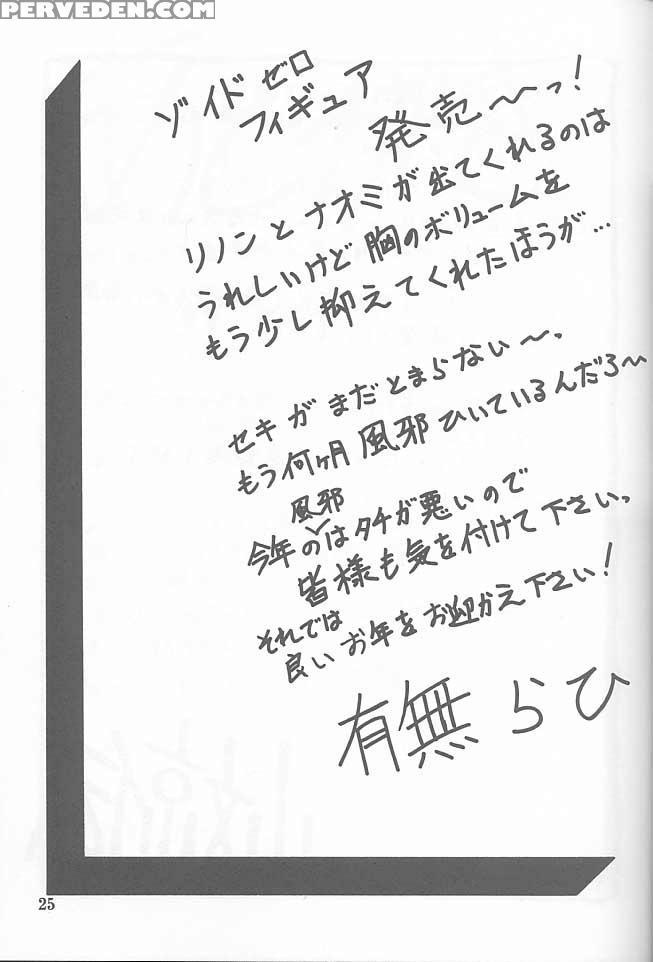 PERVEDEN.COM
ゾイドゼロ
フィギュア
発売〜っ!
リノンとナオミが出てくれるのは
うれしいけど胸のボリュームを
もう少し抑えてくれたほうが…
セキがまだとまらない〜。
もう何ヶ月風邪ひいているんだろ〜
風邪
今年のはタチが悪いので
皆様も気を付けて下さい。
それでは
良いお年をお迎かえ下さい!
有無らひ
25